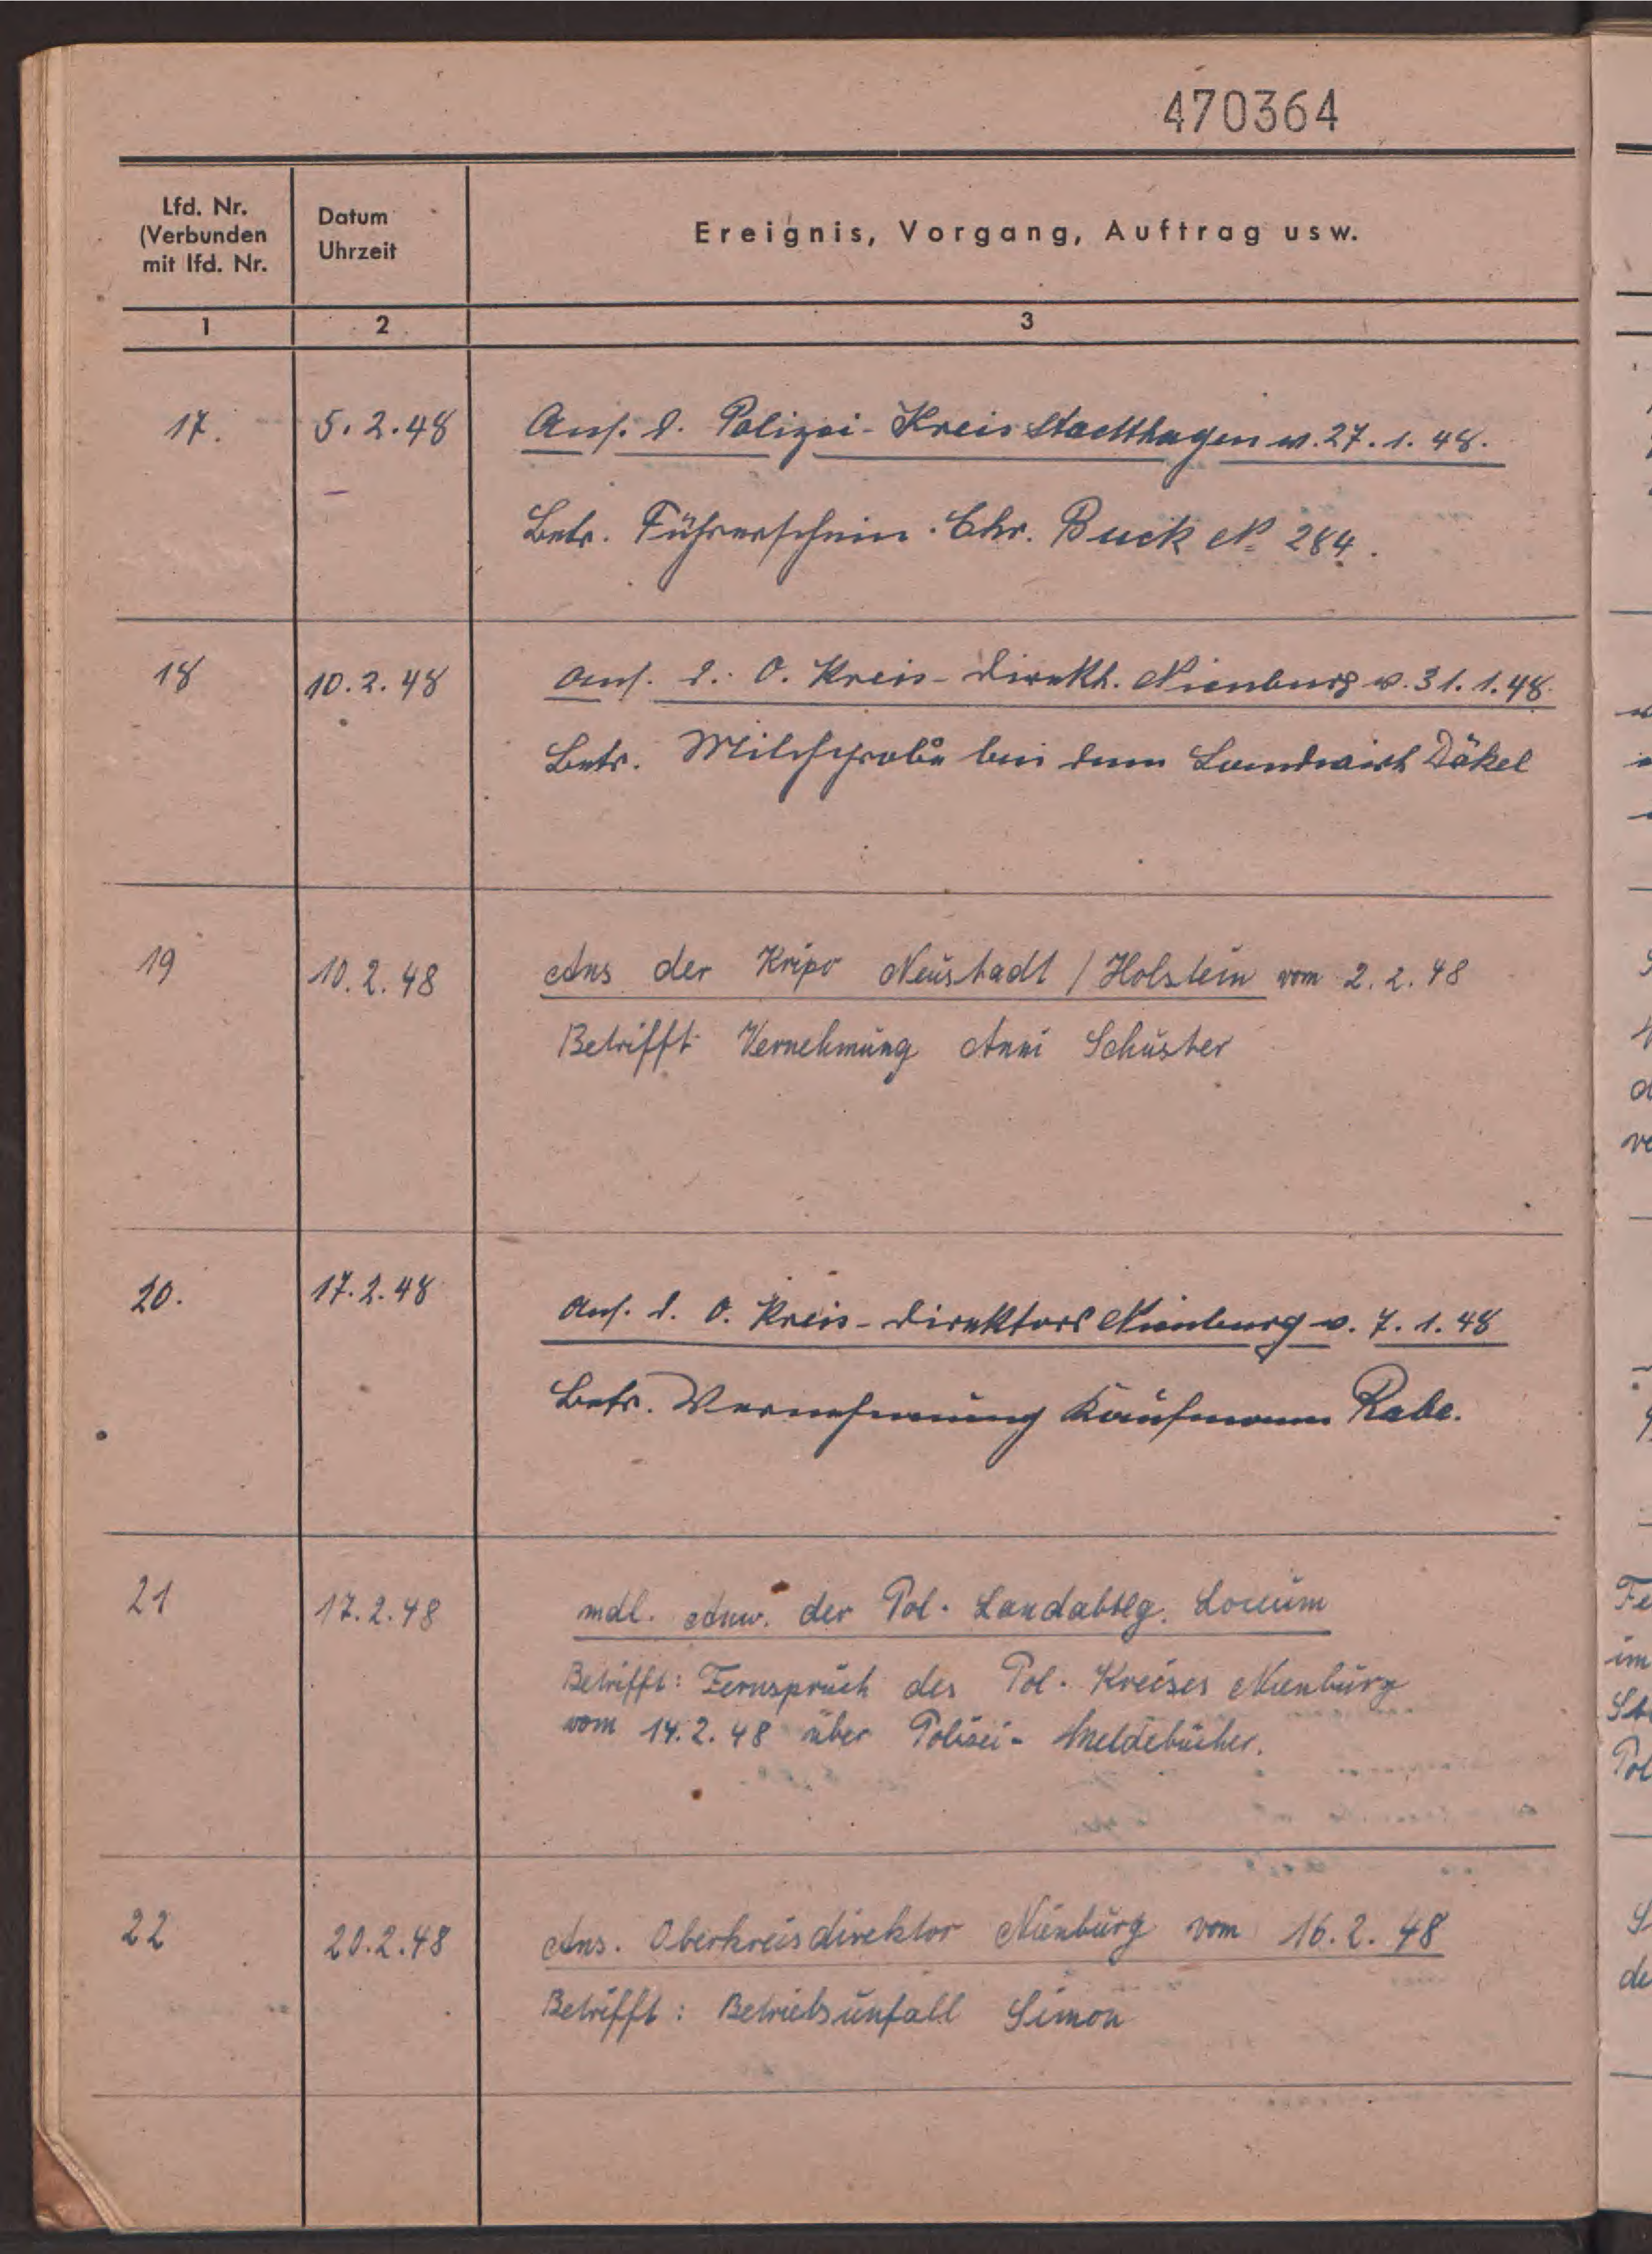 470364
Lfd. Nr.
(Verbunden
mit lfd. Nr.
Datum
Uhrzeit
Ereignis, Vorgang, Auftrag usw.
1 2 3
17. 5.2.48 Ans. d. Polizei-Kreis Stadthagen v. 27.1.48.
Betr. Führerschein Chr. Buck No 284.
18 10.2.48 Ans. d. O. Kreis-Direkt. Nienburg v. 31.1.48.
Betr. Milchprobe bei dem Landwirt Däkel
19 10.2.48 Ans der Kripo Neustadt / Holstein vom 2.2.48
Betrifft Vernehmung Anni Schuster
20. 17.2.48 Ans. d. O. Kreis-Direktors Nienburg v. 7.1.48
Betr. Vernehmung Kaufmann Rabe.
21 17.2.48 mdl. Anw. der Pol. Landabtlg. Loccum
Betrifft: Fernspruch des Pol. Kreises Nienburg
vom 14.2.48 über Polizei-Meldebücher.
22 20.2.48 Ans. Oberkreisdirektor Nienburg vom 16.2.48
Betrifft: Betriebsunfall Simon